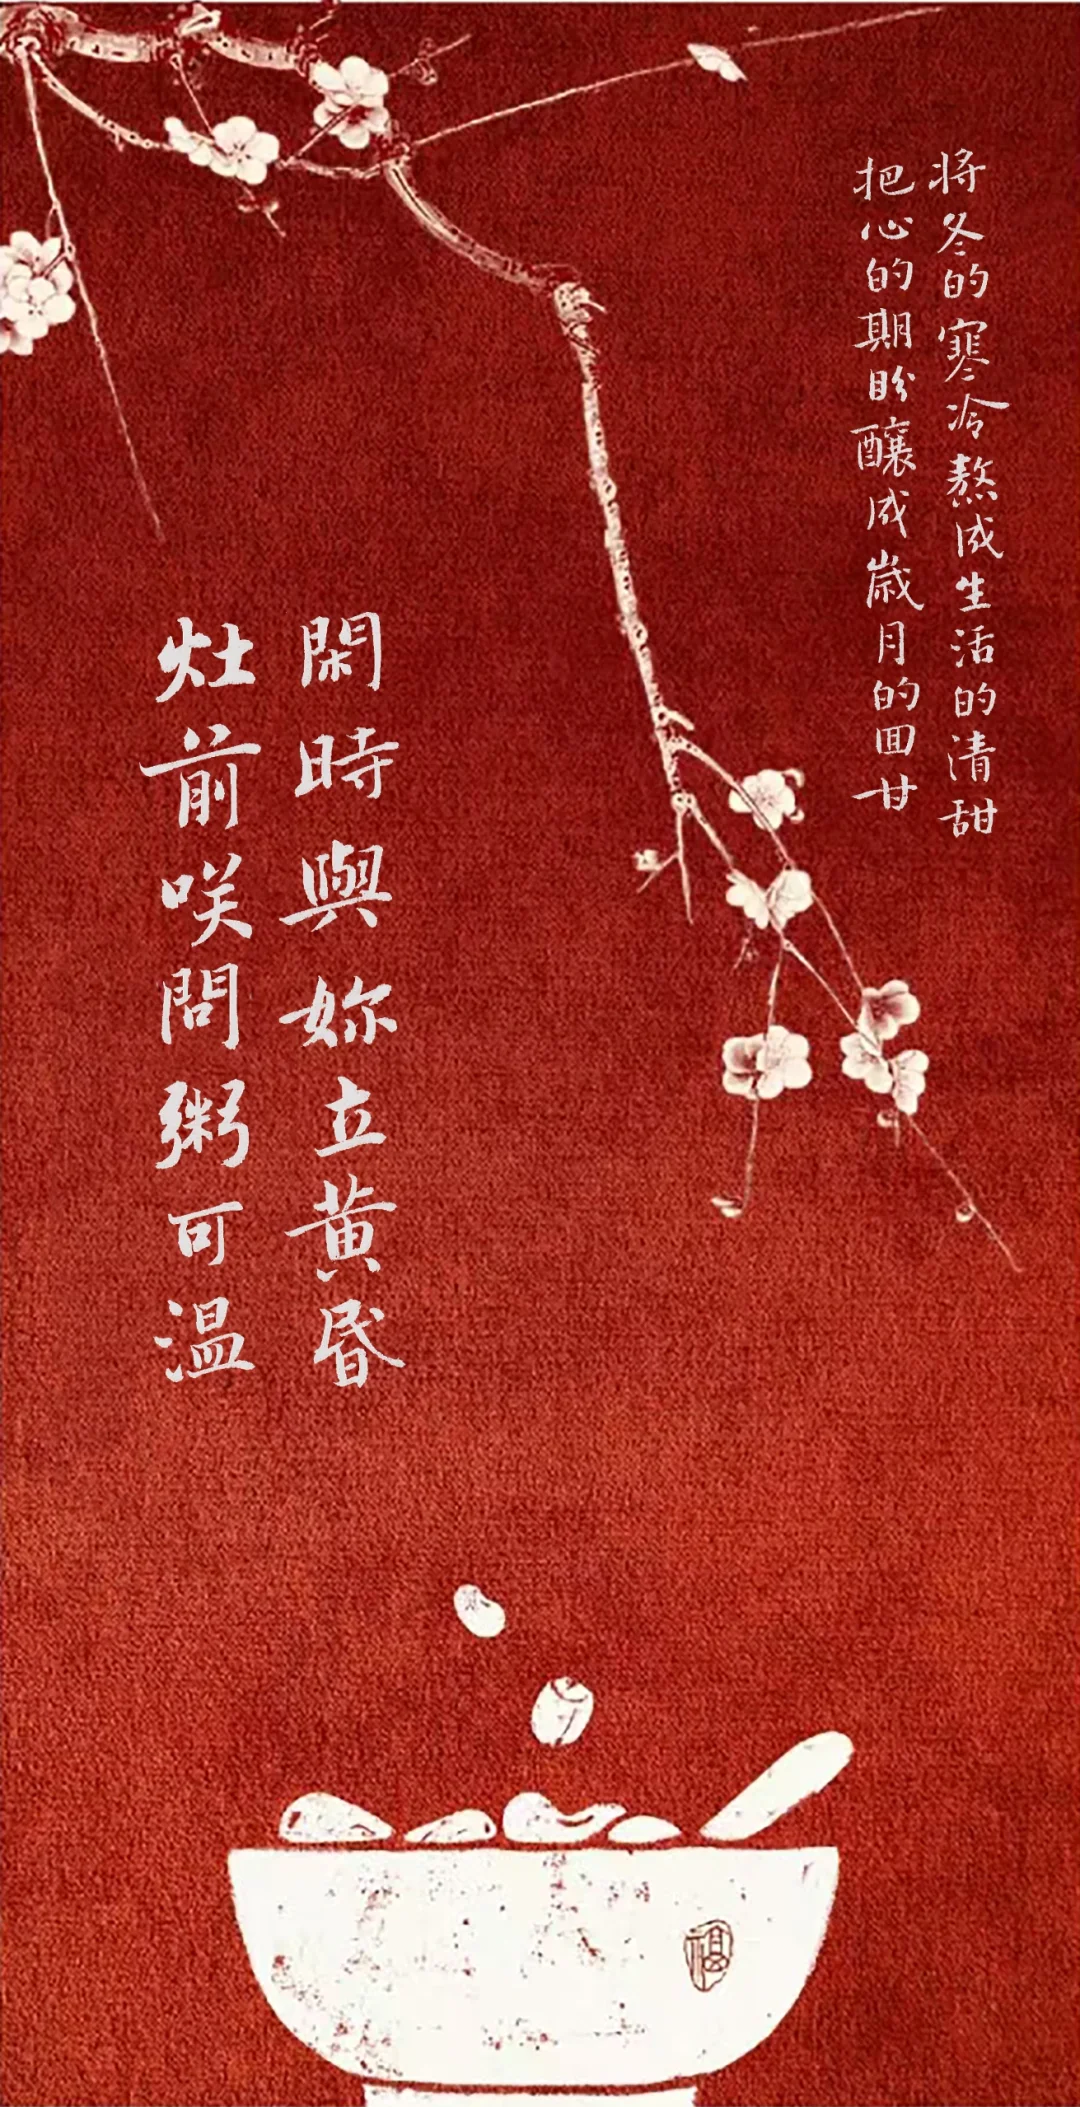 将冬的寒冷熬成生活的清甜
把心的期盼釀成歲月的回甘
閑時與妳立黄昏
灶前咲問粥可温
福